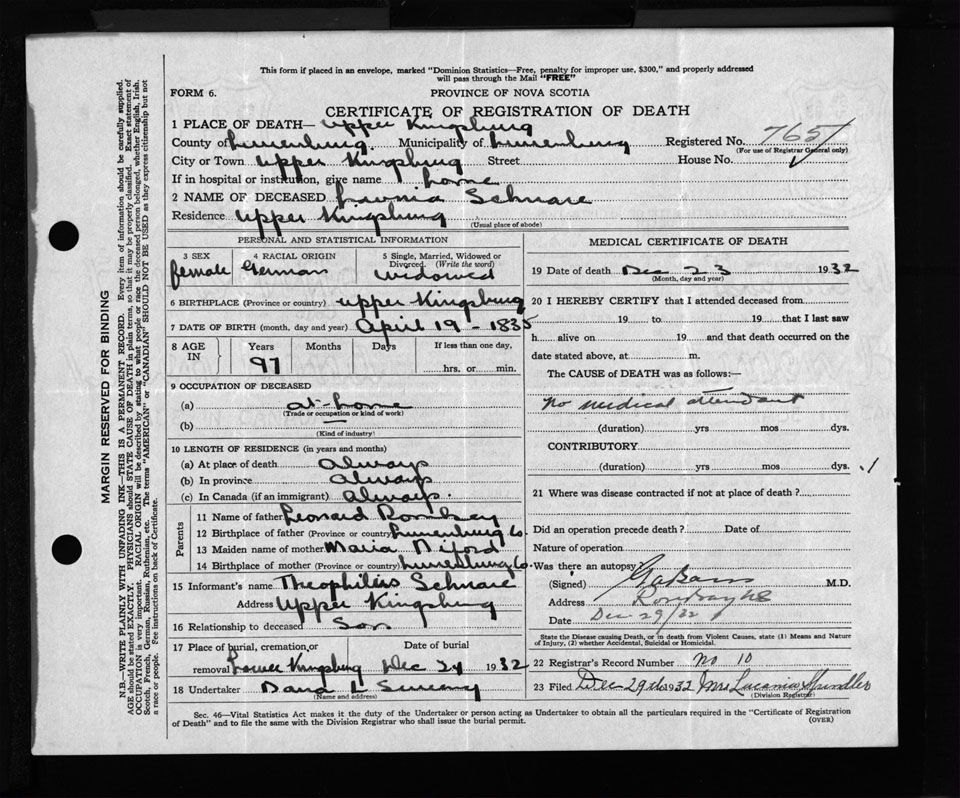 This form if placed in an envelope, marked "Dominion Statistics—Free, penalty for improper use, $300," and properly addressed
will pass through the Mail "FREE"
FORM 6.
PROVINCE OF NOVA SCOTIA
CERTIFICATE OF REGISTRATION OF DEATH
1 PLACE OF DEATH— Upper Kingsburg
County of Lunenburg Municipality of Lunenburg Registered No. 7657
(For use of Registrar General only)
City or Town Upper Kingsburg Street House No.
If in hospital or institution, give name home
2 NAME OF DECEASED Lavinia Schnare
Residence Upper Kingsburg
(Usual place of abode)
PERSONAL AND STATISTICAL INFORMATION
3 SEX
female
4 RACIAL ORIGIN
German
5 Single, Married, Widowed or
Divorced. (Write the word)
Widowed
6 BIRTHPLACE (Province or country) Upper Kingsburg
7 DATE OF BIRTH (month, day and year) April 19 - 1835
8 AGE IN Years Months Days If less than one day,
97 hrs. or min.
9 OCCUPATION OF DECEASED
(a) at-home
(Trade or occupation or kind of work)
(b)
(Kind of industry)
10 LENGTH OF RESIDENCE (in years and months)
(a) At place of death always
(b) In province always
(c) In Canada (if an immigrant) always.
Parents
11 Name of father Leonard
12 Birthplace of father (Province or country) Lunenburg Co.
13 Maiden name of mother Maria
14 Birthplace of mother (Province or country) Lunenburg Co.
15 Informant's name Theophilus Schnare
Address Upper Kingsburg
16 Relationship to deceased Son
17 Place of burial, cremation or Date of burial
removal Lower Kingsburg Dec 24 1932
18 Undertaker Dana L
(Name and address)
MEDICAL CERTIFICATE OF DEATH
19 Date of death Dec 23 1932
(Month, day and year)
20 I HEREBY CERTIFY that I attended deceased from
19 to 19 that I last saw
h alive on 19 and that death occurred on the
date stated above, at m.
The CAUSE of DEATH was as follows:—
No medical attendant
(duration) yrs mos dys.
CONTRIBUTORY
(duration) yrs mos dys.
21 Where was disease contracted if not at place of death?
Did an operation precede death? Date of
Nature of operation
Was there an autopsy?
(Signed) M.D.
Address
Date Dec 29/32
State the Disease causing Death, or in death from Violent Causes, state (1) Means and Nature
of Injury, (2) whether Accidental, Suicidal or Homicidal.
22 Registrar's Record Number No 10
23 Filed Dec 29th 1932 Mrs Lucanias Spindler
(Division Registrar)
Sec. 46—Vital Statistics Act makes it the duty of the Undertaker or person acting as Undertaker to obtain all the particulars required in the "Certificate of Registration
of Death" and to file the same with the Division Registrar who shall issue the burial permit.
(OVER)
MARGIN RESERVED FOR BINDING
N.B.—WRITE PLAINLY WITH UNFADING INK—THIS IS A PERMANENT RECORD. Every item of information should be carefully supplied.
AGE should be stated EXACTLY. PHYSICIANS should STATE CAUSE OF DEATH in plain terms, so that it may be properly classified. Exact statement of
OCCUPATION is very important. RACIAL ORIGIN will be described by stating to what people or race the deceased person belonged, whether English, Irish,
Scotch, French, German, Russian, Ruthenian, etc. The terms "AMERICAN" or "CANADIAN" SHOULD NOT BE USED as they express citizenship but not
a race or people. See instructions on back of Certificate.